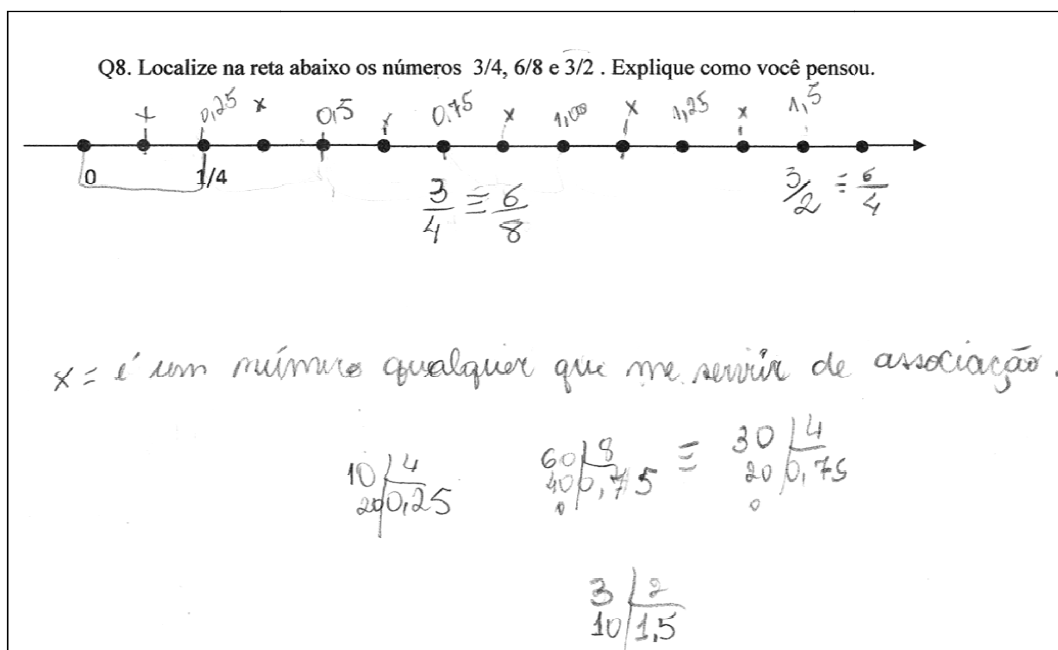 Q8. Localize na reta abaixo os números 3/4, 6/8 e 3/2 . Explique como você pensou.
x 0,25 x 0,5 x 0,75 x 1,00 x 1,25 x 1,5
0 1/4 3/4 ≡ 6/8 3/2 ≡ 6/4
x = é um número qualquer que me servir de associação.
10 | 4 60 | 8 ≡ 30 | 4
20 | 0,25 40 | 0,75 20 | 0,75
0 0
3 | 2
10 | 1,5